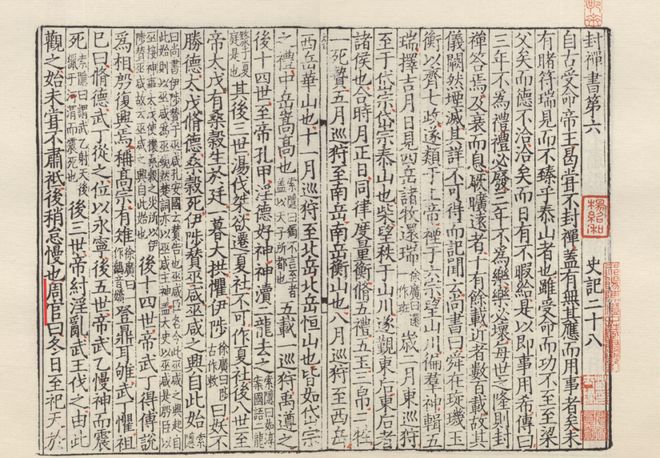 封禪書第六 史記二十八
自古受命帝王曷嘗不封禪蓋有無其應而用事者矣未
有睹符瑞見而不臻乎泰山者也雖受命而功不至至梁
父矣而德不洽洽矣而日有不暇給是以即事用希傳曰
三年不為禮禮必廢三年不為樂樂必壞每世之隆則封
禪答焉及衰而息厥曠遠者千有餘載近者數百載故其
儀闕然堙滅其詳不可得而記聞云尚書曰舜在琁璣玉
衡以齊七政遂類于上帝禋于六宗望山川徧羣神輯五
瑞擇吉月日見四岳諸牧還瑞徐廣曰還一作班歲二月東巡狩
至于岱宗岱宗泰山也柴望秩于山川遂覲東后東后者
諸侯也合時月正日同律度量衡脩五禮五玉三帛二牲
一死贄五月巡狩至南岳南岳衡山也八月巡狩至西岳
西岳華山也十一月巡狩至北岳北岳恒山也皆如岱宗
之禮中岳嵩高也索隱曰獨不言至者蓋以天子所都也五載一巡狩禹遵之
後十四世至帝孔甲淫德好神神瀆二龍去之索隱曰如淳案國語二龍
漦于夏庭是也其後三世湯伐桀欲遷夏社不可作夏社後八世至
帝太戊有桑穀生於廷一暮大拱懼伊陟徐廣曰陟古作敕曰妖不
勝德太戊脩德桑穀死伊陟贊巫咸巫咸之興自此始索隱
曰尚書伊陟贊于巫咸孔安國云贊告也巫咸臣名後十四世帝武丁得傅說
為相殷復興焉稱高宗有雉登鼎耳雊武丁懼祖
己曰脩德武丁從之位以永寧後五世帝武乙慢神而震
死後三世帝紂淫亂武王伐之由此
觀之始未嘗不肅祗後稍怠慢也周官曰冬日至祀天於